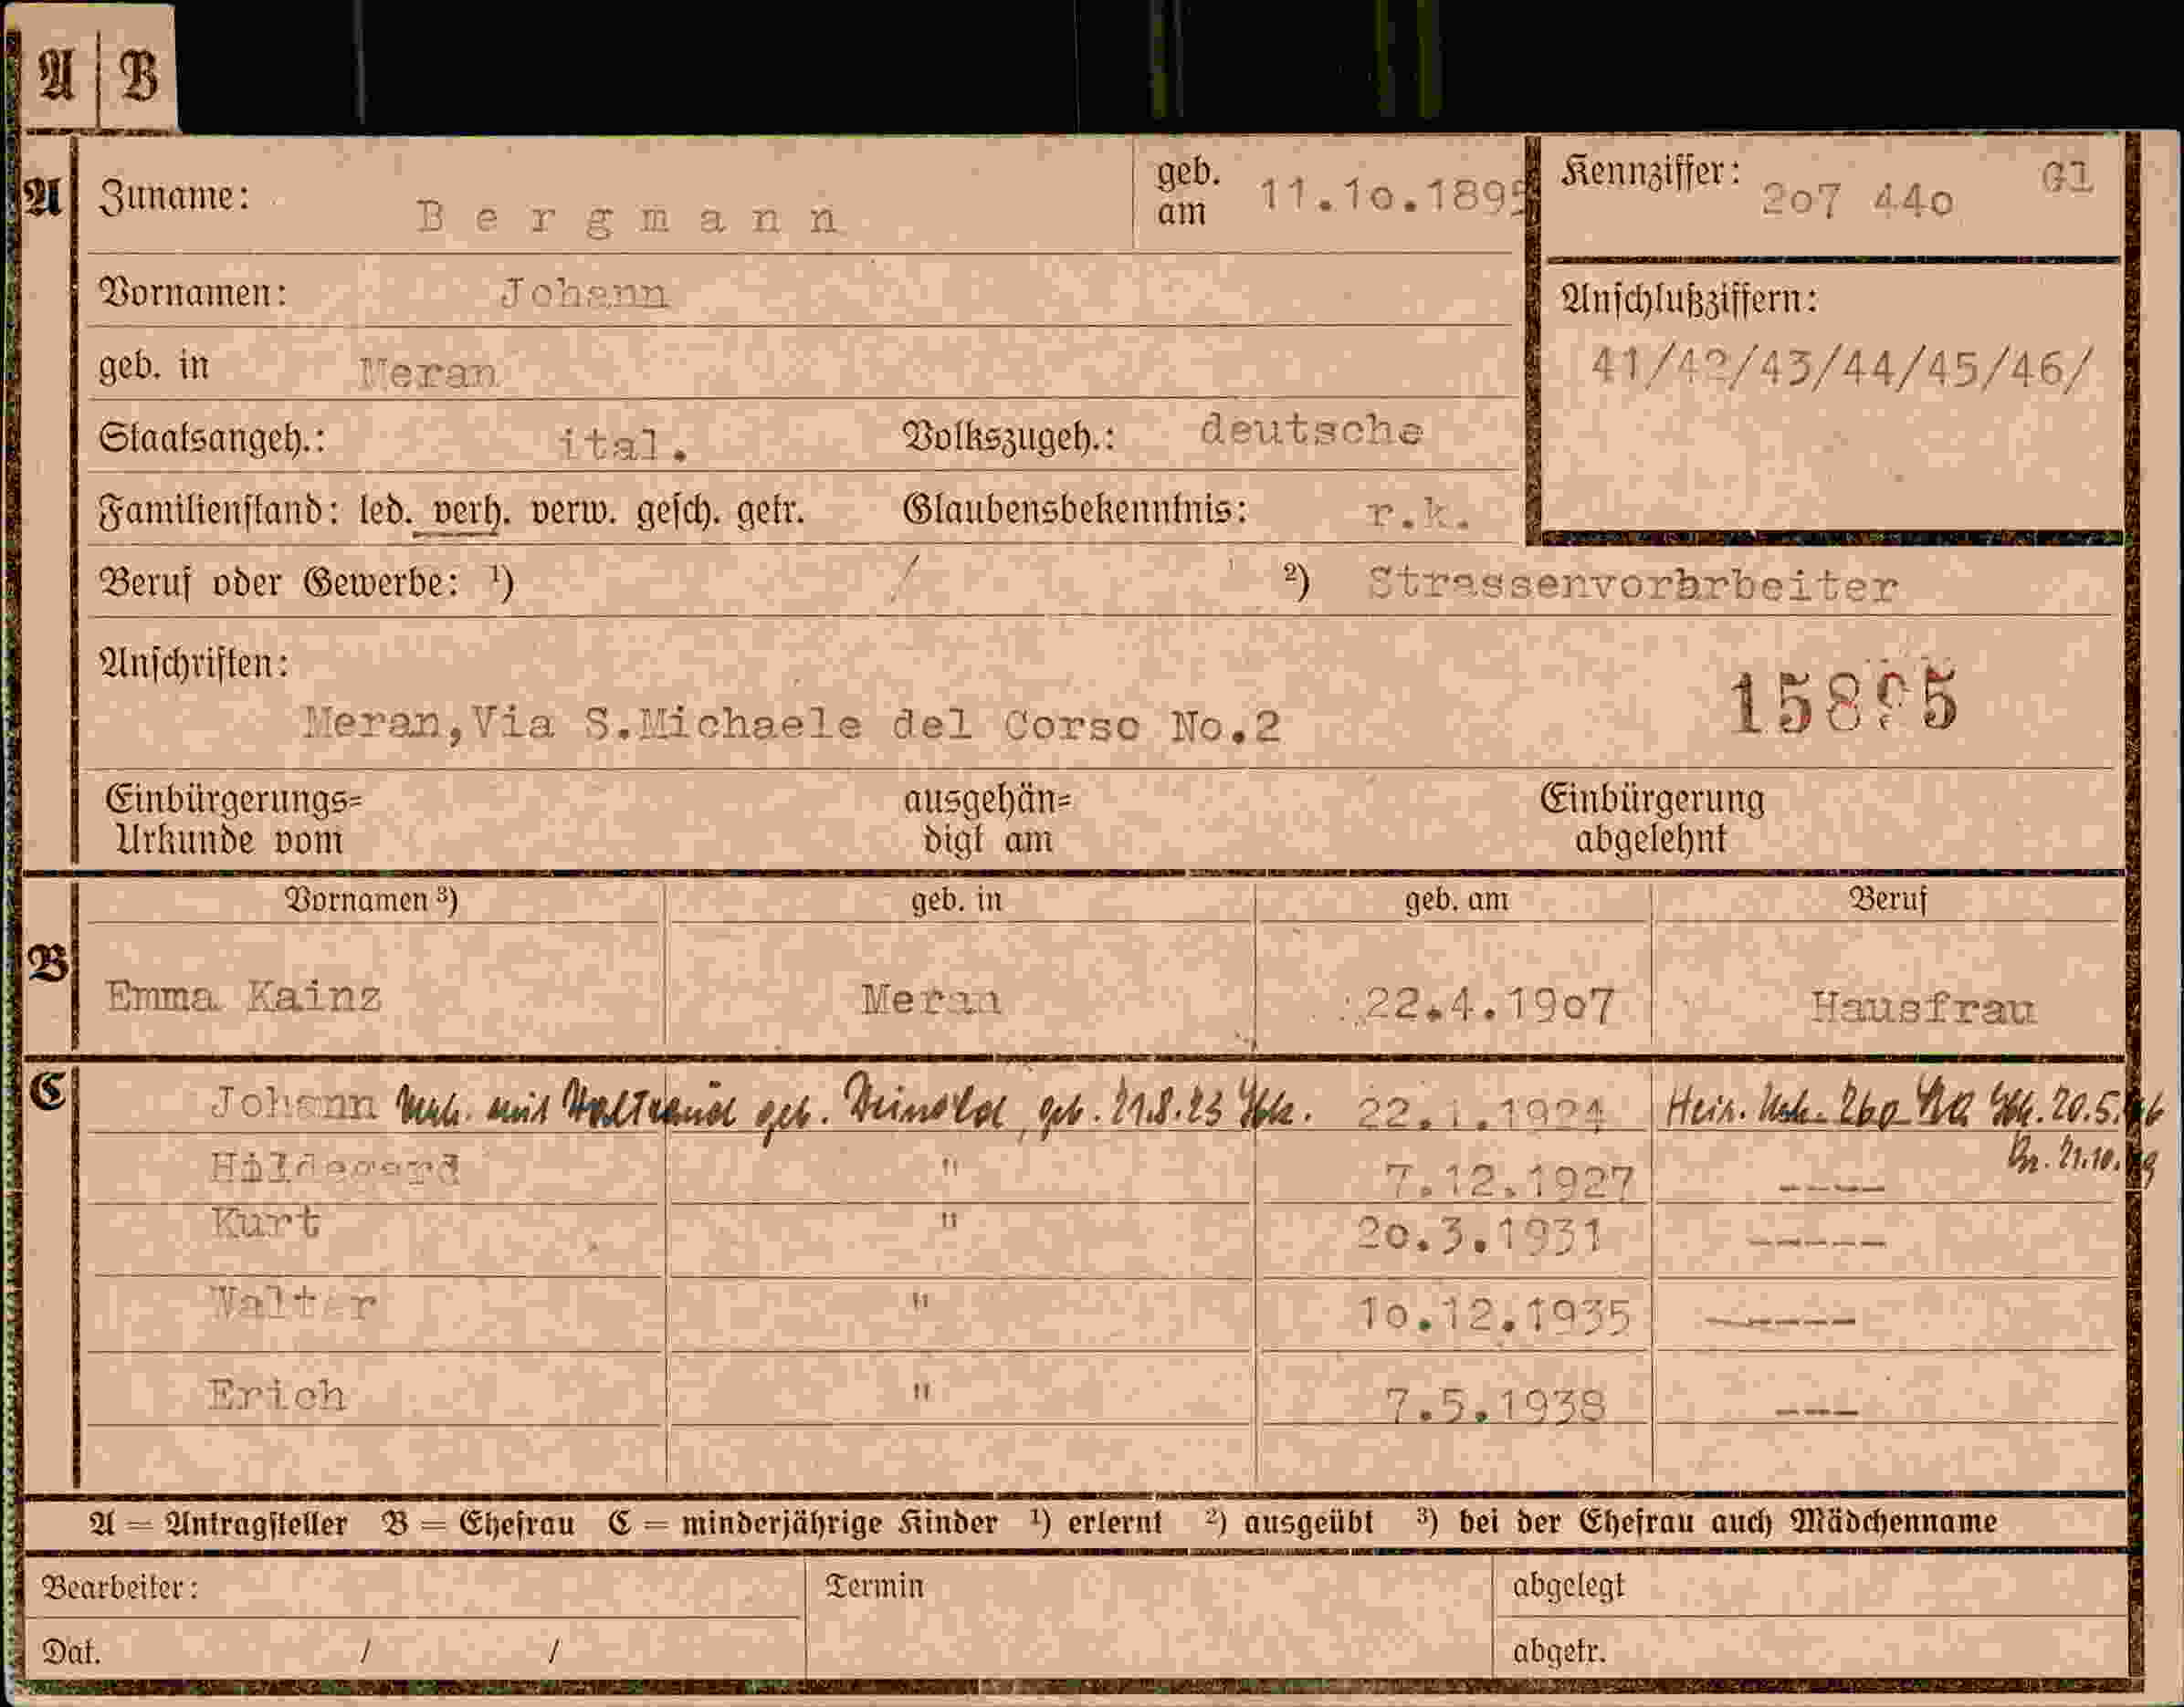 A | B
A Zuname: Bergmann geb. am 11.10.1895 Kennziffer: 207 440 Gl
Vornamen: Johann
Anschlußziffern:
geb. in Meran 41/42/43/44/45/46/
Staatsangeh.: ital. Volkszugeh.: deutsche
Familienstand: led. verh. verw. gesch. getr. Glaubensbekenntnis: r.k.
Beruf oder Gewerbe: ¹) / ²) Strassenvorarbeiter
Anschriften:
Meran,Via S.Michaele del Corso No.2 15895
Einbürgerungs= ausgehän= Einbürgerung
Urkunde vom digt am abgelehnt
Vornamen ³) geb. in geb. am Beruf
B Emma Kainz Meran 22.4.1907 Hausfrau
C Johann mit Waltraud geb. geb. 21.8.23 22.1.1924 Heir. Urk. 260 20.5.
21.10.
Hildegard " 7.12.1927 ----
Kurt " 20.3.1931 -----
Walter " 10.12.1935 -----
Erich " 7.5.1938 ---
A = Antragsteller B = Ehefrau C = minderjährige Kinder ¹) erlernt ²) ausgeübt ³) bei der Ehefrau auch Mädchenname
Bearbeiter: Termin abgelegt
Dat. / / abgetr.